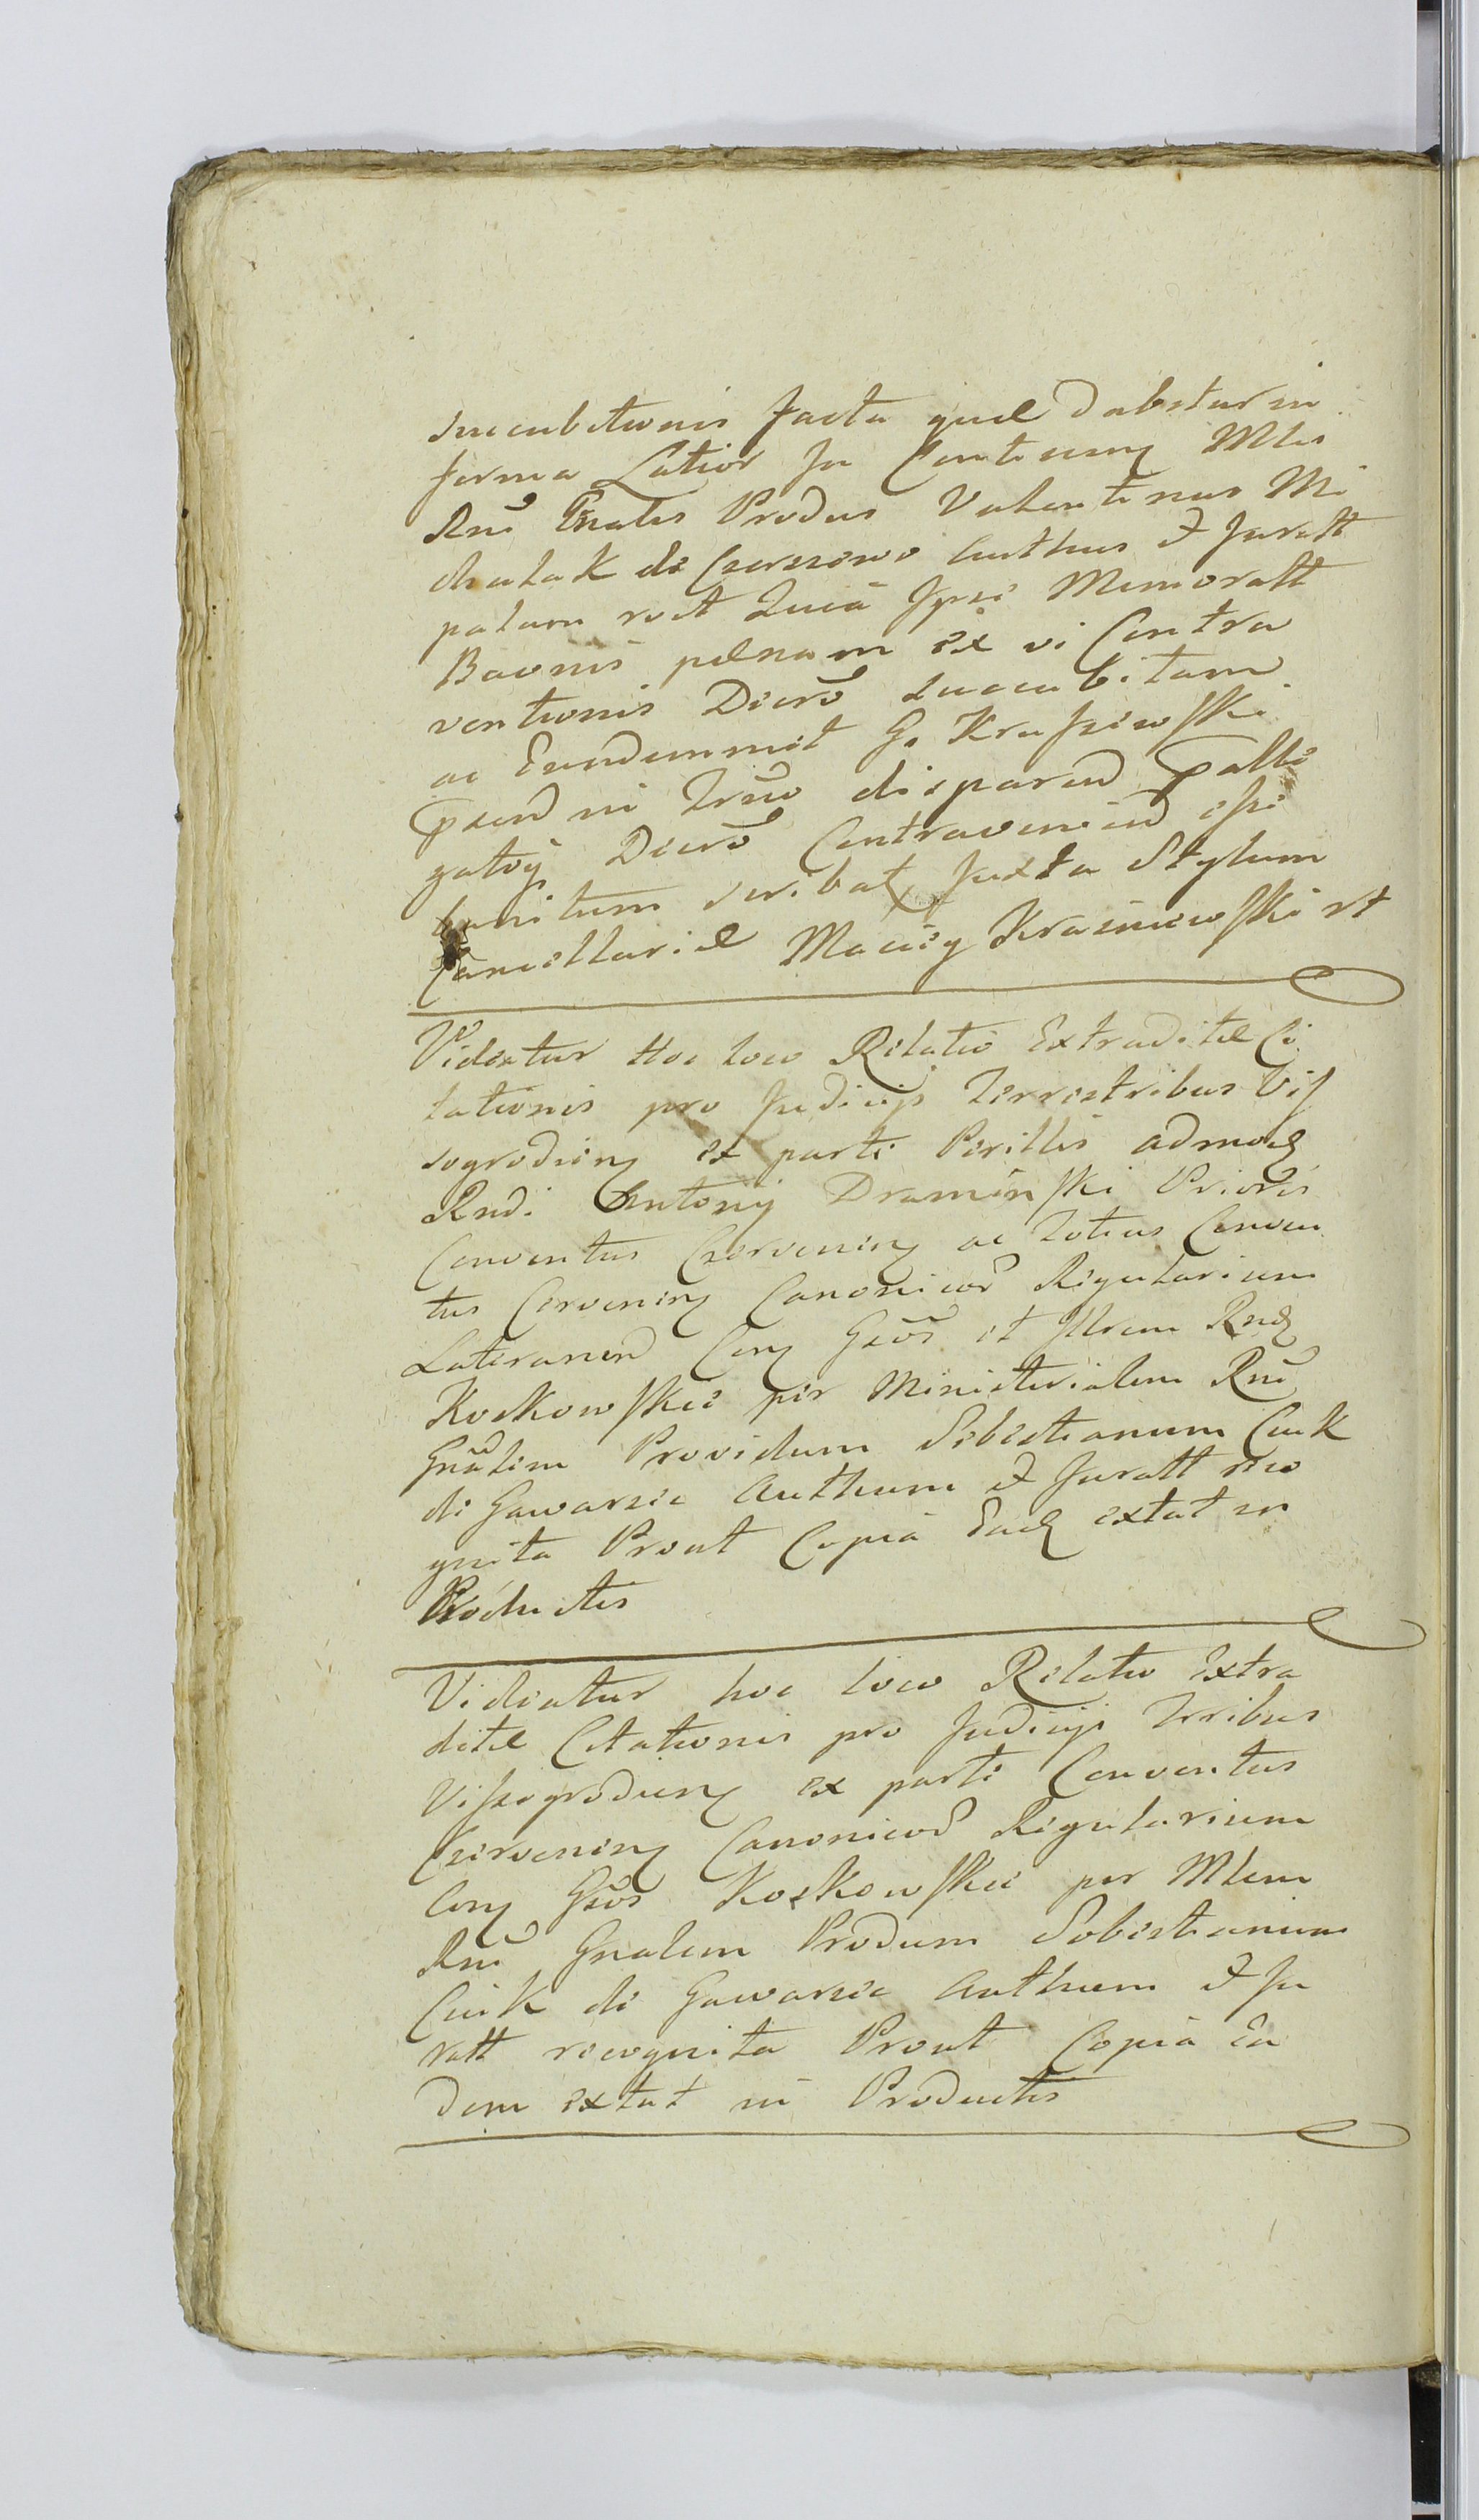 succubitionis facta quæ dabitur in
forma Latior In Conten Mlis
Rni Gnalis Produs Valentinus Mi
chalak de Czerszewo Authus et Juratt
palam rect Lucia Ipse Memoratt
Baonis pænam ex vi Contra
ventionis Decro succubitam
ac Eundemmet G. Kraszewski
psend in Treo disparend
Decro Contraveniend esse
banitum scribat Juxta Stylum
Cancellariæ Maciey Krasniewski rt
Videatur Hoc loco Relatio Extraditæ Ci
tationis pro Judicijs Terrestribus Vis
sogrodien ex parte Perillis admod
Rndi Antonij Dramiński Prioris
Conventus Czervenien ac Totius Conven
tus Cervenien Canonicor Regularium
Lateranen Con Gsos et Illrem Rnd
Koskowskie per Ministerialem Rni
Gnalem Providum Sebestianum Cuik
de Gawarzic Authum et Juratt reco
gnita Prout Copia Ead extat in
Productis
Videatur hoc loco Relatio Extra
ditæ Citationis pro Judicijs Trribus
Vissogrodien ex parte Conventus
Czervenien Canonicor Regularium
Con Gsos Koskowskie per Mlem
Rni Gnalem Produm Sebestianum
Cuik de Gawarzic Authum et Ju
ratt recognita Prout Copia Ea
dem extat in Productis